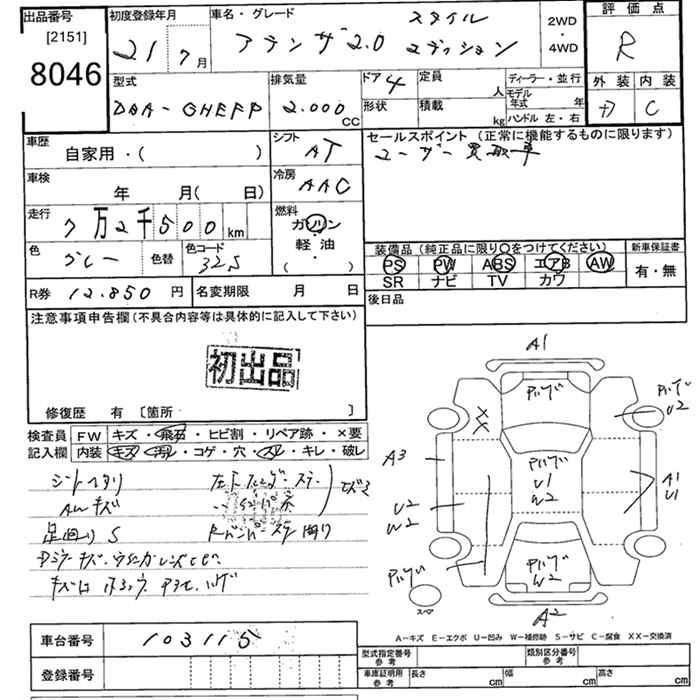 出品番号 [2151] 8046
初度登録年月 21 7月
車名・グレード アテンザ 2.0 スタイルエディション
2WD・4WD
評価点 R
外装 内装 C
型式 DBA-GHEFP
排気量 2.000 CC
ドア 4
形状
定員 人
積載 kg
ディーラー・並行
モデル年式 年
ハンドル 左・右
車歴 自家用・( )
シフト AT
セールスポイント (正常に機能するものに限ります)
ユーザー買取車
車検 年 月( 日)
冷房 AAC
走行 7万2千500km
燃料 ガソリン・軽油・( )
色 グレー 色替
色コード 32S
装備品 (純正品に限り○をつけてください)
PS PW ABS エアB AW
SR ナビ TV カワ
新車保証書 有・無
R券 12.850 円
名変期限 月 日
後日品
注意事項申告欄 (不具合内容等は具体的に記入して下さい)
初出品
修復歴 有 [箇所 ]
検査員記入欄
FW キズ・飛石・ヒビ割・リペア跡・×要
内装 キズ・汚レ・コゲ・穴・スレ・キレ・破レ
シートヘタリ
AWキズ
足回りS
A1
U2
A3
A1
U1
U2
W2
U1
W2
W2
A2
スペア
A-キズ E-エクボ U-凹み W-補修跡 S-サビ C-腐食 XX-交換済
車台番号 103115
登録番号
型式指定番号 参考
類別区分番号 参考
車庫証明用 参考 長さ cm 幅 cm 高さ cm